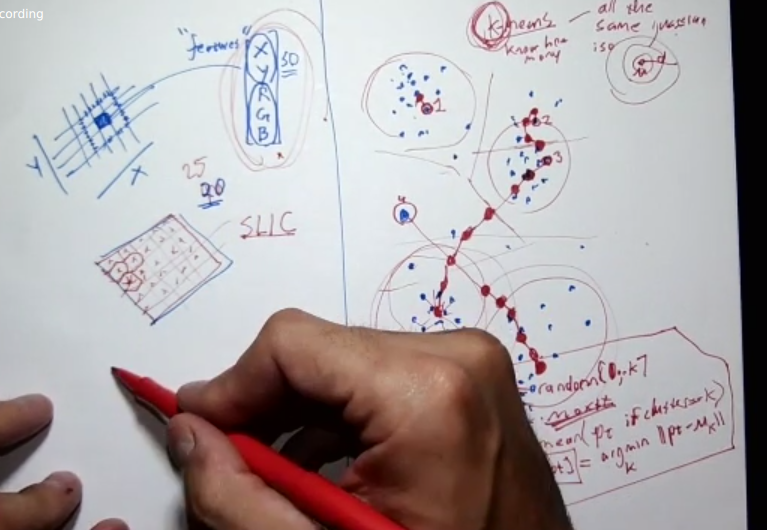 cording
"features"
X
Y
R
G
B
5D
Y
X
25
20
SLIC
k-means
know how
many
all the
same
iso
d
1
2
3
4
= random[0,.k]
mean(pt if cluster==k)
= argmin ||pt-μk||
k